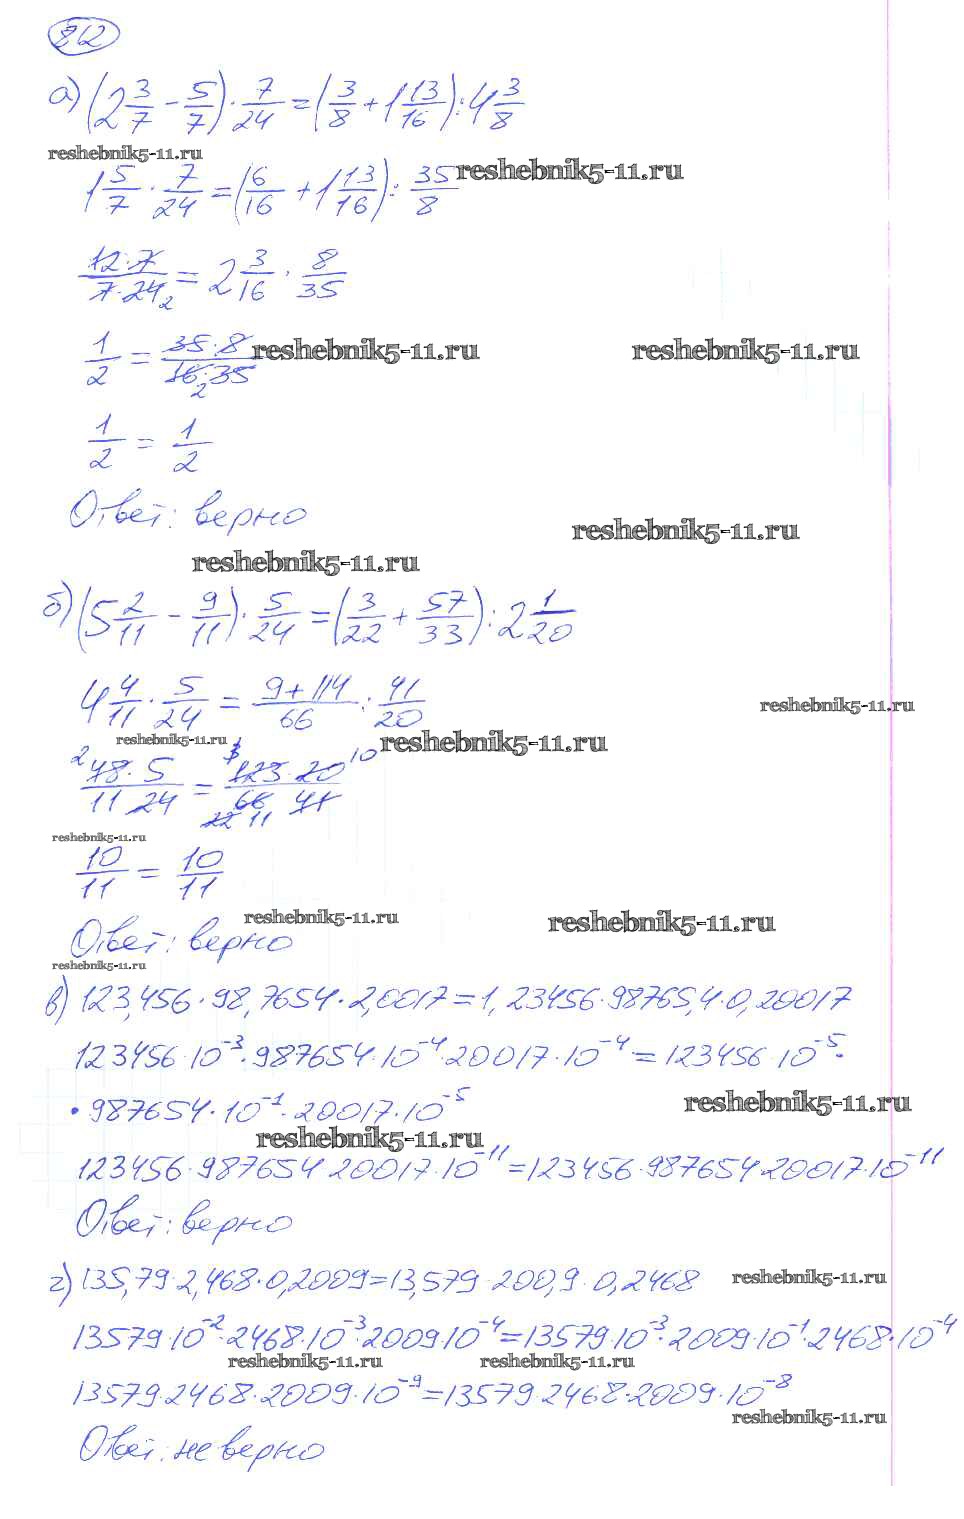 212
а) (2 3/7 - 5/7) · 7/24 = (3/8 + 1 13/16) : 4 3/8
reshebnik5-11.ru
reshebnik5-11.ru
1 5/7 · 7/24 = (6/16 + 1 13/16) : 35/8
12·7/7·24 2 = 2 3/16 · 8/35
1/2 = 35·8/16·35 2
reshebnik5-11.ru
reshebnik5-11.ru
1/2 = 1/2
Ответ: верно
reshebnik5-11.ru
reshebnik5-11.ru
б) (5 2/11 - 9/11) · 5/24 = (3/22 + 57/33) : 2 1/20
4 4/11 · 5/24 = 9+114/66 : 41/20
reshebnik5-11.ru
reshebnik5-11.ru
reshebnik5-11.ru
2 48·5/11 24 = 3 123·20 10/66 41 22 11
reshebnik5-11.ru
10/11 = 10/11
reshebnik5-11.ru
reshebnik5-11.ru
Ответ: верно
reshebnik5-11.ru
в) 123,456·98,7654·2,0017=1,23456·987654·0,20017
123456·10⁻³·987654·10⁻⁴·20017·10⁻⁴=123456·10⁻⁵·
·987654·10⁻¹·20017·10⁻⁵
reshebnik5-11.ru
reshebnik5-11.ru
123456·987654·20017·10⁻¹¹=123456·987654·20017·10⁻¹¹
Ответ: верно
г) 135,79·2,468·0,2009=13,579·200,9·0,2468
reshebnik5-11.ru
13579·10⁻²·2468·10⁻³·2009·10⁻⁴=13579·10⁻³·2009·10⁻¹·2468·10⁻⁴
reshebnik5-11.ru
reshebnik5-11.ru
13579·2468·2009·10⁻⁹=13579·2468·2009·10⁻⁸
reshebnik5-11.ru
Ответ: не верно